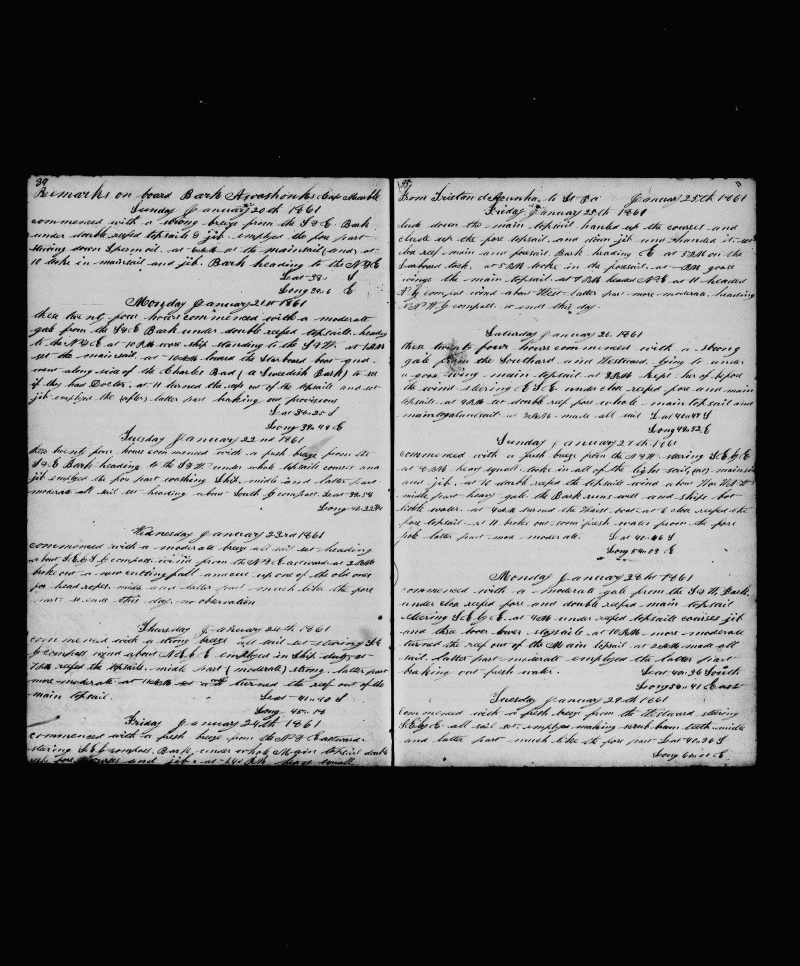 34
Remarks on board Bark Awashonks Capt Marble
Sunday January 20th 1861
commenced with a strong breeze from the S & E. Bark
under double reefed topsails & jib employed the fore part
down Sperm oil. at the mainsail and at
10 take in mainsail and jib. Bark heading to the N & E
Lat 38 S
Long 36.6 E
Monday January 21st 1861
these twenty four hours commenced with a moderate
gale from the S & E Bark under double reefed topsails heading
to the N & E at 10 PM wore ship standing to the S & W. at
set the mainsail. at lowered the Starboard boat and
went along side of the Charles Bad (a Swedish Bark) to see
if they had Doctor. at 11 turned the reefs out of the topsails and set
jib employed the (after) latter part breaking out provisions
Lat 38-25 S
Long 38-48 E
Tuesday January 22nd 1861
these twenty four hours commenced with a fresh breeze from the
S & E Bark heading to the S & W. under whole topsails courses and
jib employed the fore part washing Ship middle and latter part
moderate all sail set heading about South by compass. Lat 39.54
Long 40.22
Wednesday January 23rd 1861
commenced with a moderate breeze all sail set heading
about S.E by S by compass. wind from the N & Eastward. at 2 PM
broke out a new cutting fall and cut up one of the old ones
for head ropes. middle and latter part much like the fore
part so ends this day. no observation
Thursday January 24th 1861
commenced with a strong breeze all sail set steering S E
by compass wind about N.E by E employed in Ship duty at
7 PM reefed the topsails. middle part (moderate) strong. latter part
more moderate. at turned the reef out of the
main topsail. Lat 41-40 S
Long 45-14
Friday January 24th 1861
commenced with a fresh breeze from the N & Eastward
steering S.E by compass. Bark under whole Main topsail double
reef fore courses and jib. at PM heavy squall
35
From Tristan de Acunha to St Pa January 25th 1861
Friday January 25th 1861
clued down the main topsail hauled up the courses and
clued up the fore topsail and down jib and handed it. set
close reef main and foresail. Bark heading E at 3 PM on the
Larboard tack. at 5 PM take in the foresail. at PM goose
wings the main topsail. at 7 PM headed N E at 11 headed
N by compass wind about West. latter part more moderate. heading
N.N.W by compass. so ends this day
Saturday January 26. 1861
these twenty four hours commenced with a strong
gale from the Southard and Westward. lying to under
a goose wing main topsail at 3 PM kept her of before
the wind steering E.S.E. under close reefed fore and main
topsails. at double reef fore whole main topsail and
main topgalansail at made all sail Lat 41-47 S
Long 49-52 E
Sunday January 27th 1861
commenced with a fresh breeze from the N & W steering S.E by E
at 4 PM heavy squall take in all of the light sails, mainsail
and jib. at 10 double reefed the topsails wind about
middle part heavy gale the Bark runs well and ships but
little water. at turned the Waist boat. at 6 close reefed the
fore topsail. at 11 broke out some fresh water from the fore
latter part mod moderate. Lat 40-46 S
Long 54-09 E
Monday January 28th 1861
commenced with a moderate gale from the S & W. Bark
under close reefed fore and double reefed main topsail
steering S.E by E. at under reefed topsails courses jib
and three lower staysails at 10 PM more moderate
turned the reef out of the Main topsail at made all
sail. latter part moderate employed the latter part
breaking out fresh water. Lat 40-36 South
Long 56-41 East
Tuesday January 29th 1861
commenced with a fresh breeze from the Westward steering
S.E by E all sail set. employed making scrub from teeth. middle
and latter part much like the fore part Lat 40-26 S
Long 60-00 E